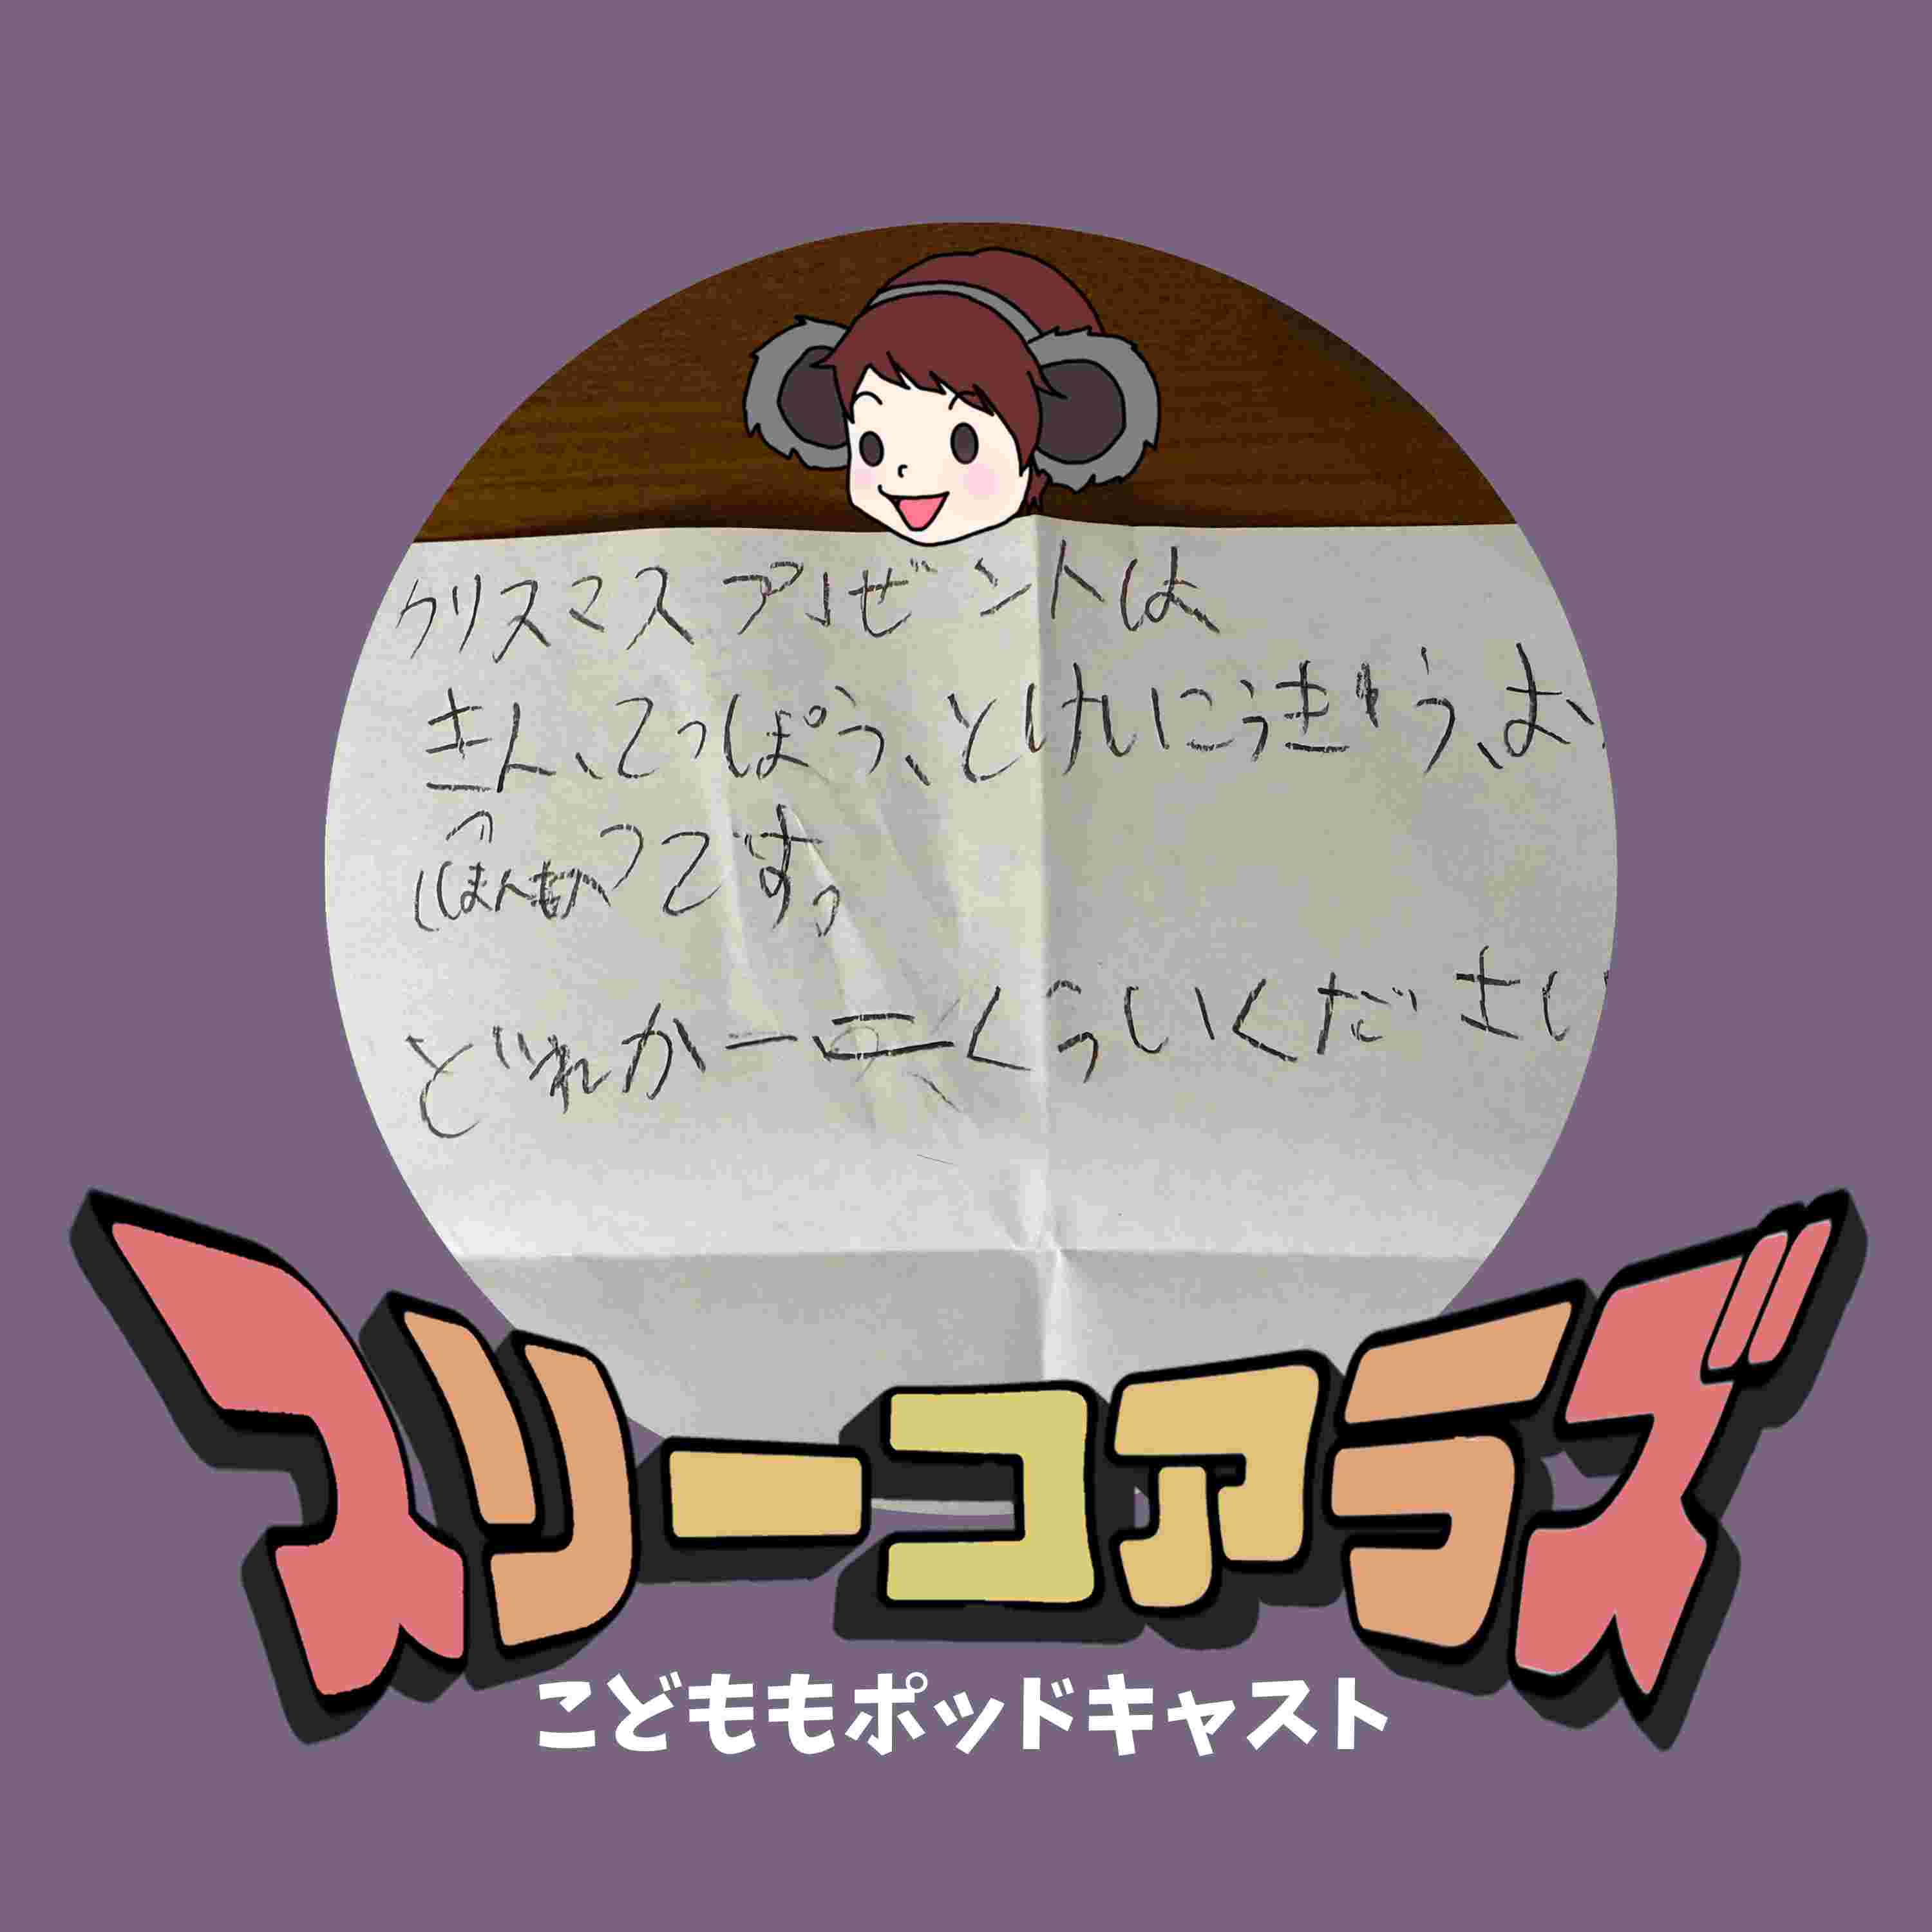 クリスマスプレゼントは
きん、てっぽう、とけいにうきゅう、お
(ほんもの)つです。
どれか一つくらいください
スリーコアラズ
こどももポッドキャスト